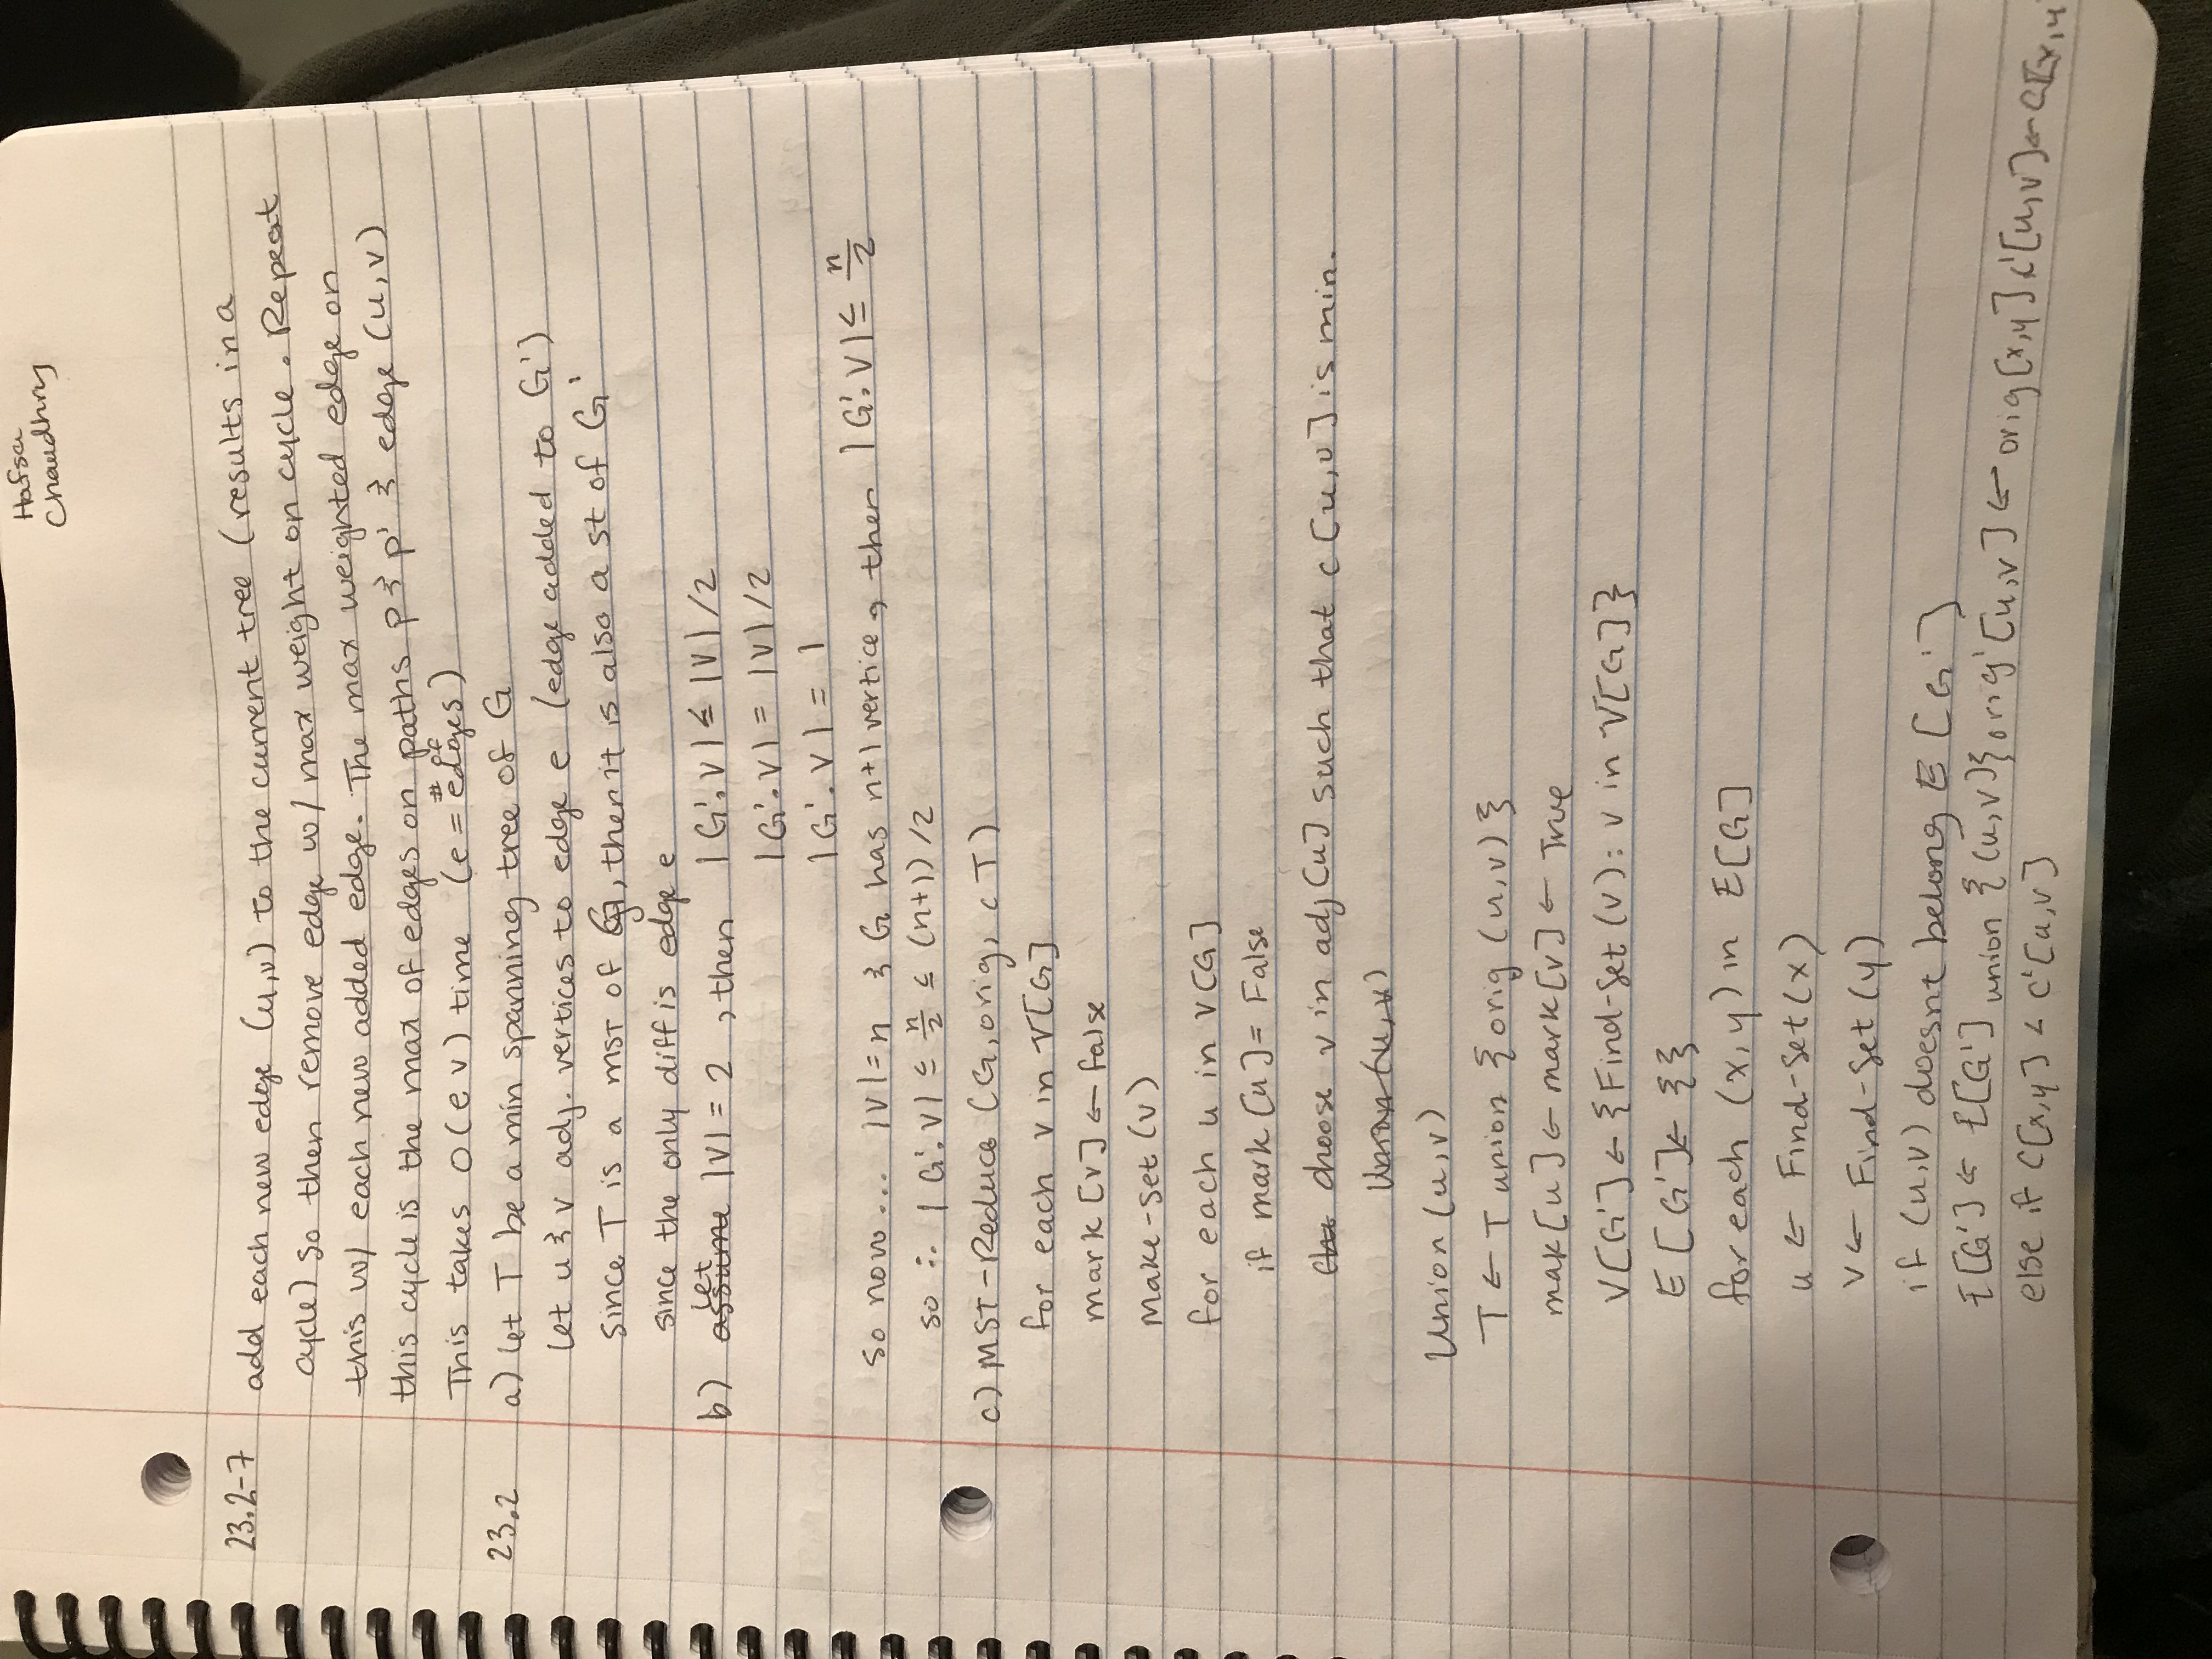 Hafsa
Chaudhry
23.2-7 add each new edge (u,v) to the current tree (results in a
cycle) so then remove edge w/ max weight on cycle. Repeat
this w/ each new added edge. The max weighted edge on
this cycle is the max of edges on paths p & p' & edge (u,v)
This takes O(ev) time (e = # of edges)
23.2 a) Let T be a min spanning tree of G
Let u & v adj. vertices to edge e (edge added to G')
Since T is a MST of G, then it is also a st of G'
since the only diff is edge e
b) assume let |V| = 2, then |G'.V| ≤ |V|/2
|G'.V| = |V|/2
|G'.V| = 1
so now... |V|=n & G has n+1 vertice, then |G'.V| ≤ n/2
so ∴ |G'.V| ≤ n/2 ≤ (n+1)/2
c) MST-Reduce (G, orig, c T)
for each v in V[G]
mark [v] ← false
Make-set (v)
for each u in V[G]
if mark [u] = False
choose v in adj [u] such that c [u,v] is min.
Union (u,v)
Union (u,v)
T ← T union {orig (u,v)}
mak[u] ← mark[v] ← True
V[G'] ← {Find-Set (v): v in V[G]}
E [G'] ← {}
for each (x,y) in E[G]
u ← Find-Set (x)
v ← Find-Set (y)
if (u,v) doesnt belong E [G']
E[G'] ← E[G'] union {(u,v)} orig' [u,v] ← orig[x,y] c'[u,v] ← c[x,y
else if c[x,y] < c'[u,v]